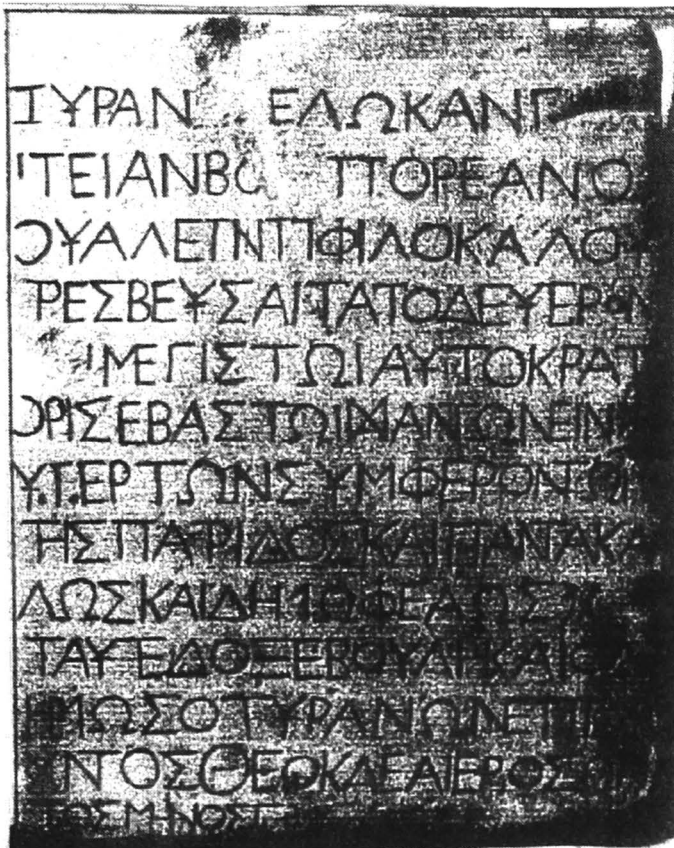 ΤΥΡΑΝ ΕΔΩΚΑΝΓ
ΙΤΕΙΑΝΒΟ ΠΟΡΕΑΝΟ
ΟΥΑΛΕΓΝΤΙΦΙΛΟΚΑΛΟ
ΡΕΣΒΕΥΣΑΙΤΑΤΟΔΕΥΕΡΟΝ
ΙΜΕΓΙΣΤΩΙΑΥΤΟΚΡΑΤ
ΟΡΙΣΕΒΑΣΤΩΙΜΑΝΤΩΝΕΙΝ
ΥΠΕΡΤΩΝΣΥΜΦΕΡΟΝΤΩΝ
ΤΗΣΠΑΤΡΙΔΟΣΚΑΙΠΑΝΑΚΑ
ΛΩΣΚΑΙΔΗΙΟΦΕΛΩΣ
ΤΑΥΕΔΟΞΕΒΟΥΛΗΚΑΙ
ΗΜΩΣΟΤΥΡΑΝΩΝΕΠΙ
ΝΤΟΣΘΕΟΚΛΕΑΙΕΡΟΣ
ΤΟΣΜΗΝΟΣΓ